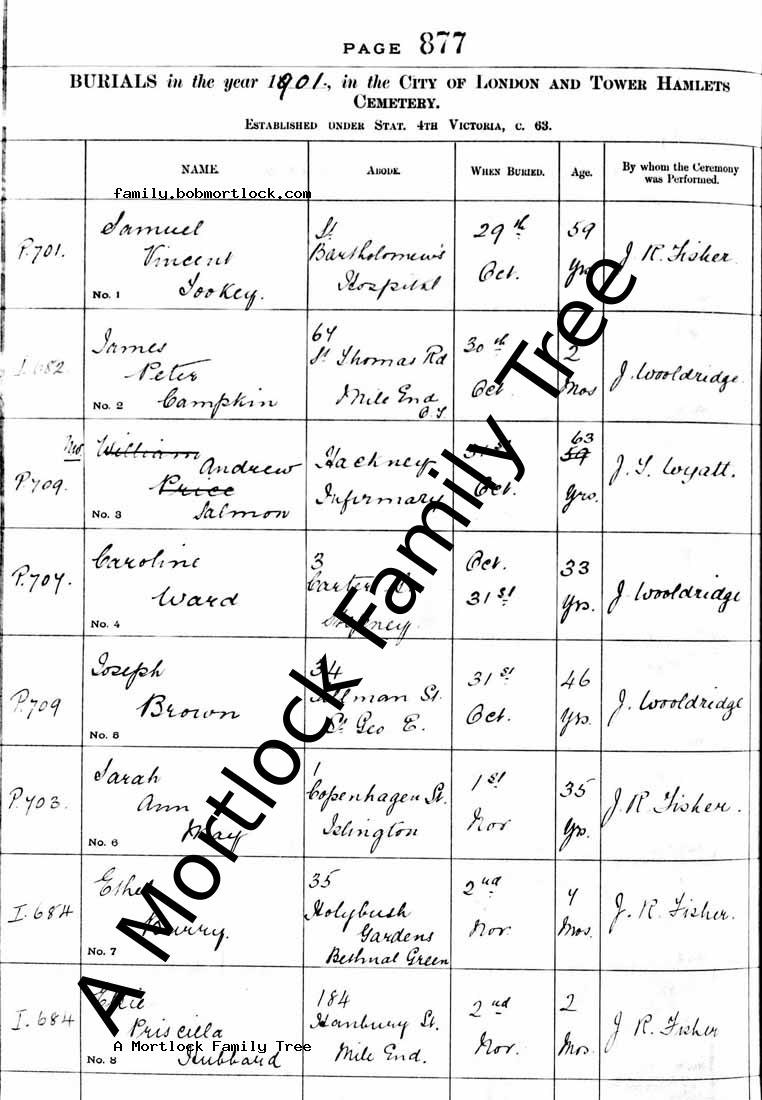 PAGE 877
BURIALS in the year 1901, in the CITY OF LONDON AND TOWER HAMLETS
CEMETERY.
ESTABLISHED UNDER STAT. 4TH VICTORIA, C. 63.
NAME. ABODE. WHEN BURIED. Age. By whom the Ceremony
was Performed.
family.bobmortlock.com
P.701. Samuel St. 29th 59 J. R. Fisher
Vincent Bartholomew's Oct. Yrs
No. 1 Tookey. Hospital
I.682 James 64 30th 2 J. Wooldridge
Peter St Thomas Rd Oct. Mos
No. 2 Campkin Mile End
P.709. William Andrew Hackney 31st 63 59 J. S. Wyatt.
Price Infirmary Oct. Yrs.
No. 3 Salmon
P.707. Caroline 3 Oct. 33 J. Wooldridge
Ward Carter 31st Yrs.
No. 4 Stepney.
P.709 Joseph 34 31st 46 J. Wooldridge
Brown St. Oct. Yrs.
No. 5 St Geo E.
P.703. Sarah 1 1st 35 J. R. Fisher.
Ann Copenhagen St. Nov Yrs.
No. 6 May Islington
I.684 Ethel 35 2nd 4 J. R. Fisher.
Burry. Holybush Nov. Mos.
Gardens
No. 7 Bethnal Green
I.684 Effie 184 2nd 2 J. R. Fisher
Priscilla Hanbury St. Nov. Mos.
No. 8 Hubbard Mile End.
A Mortlock Family Tree
A Mortlock Family Tree